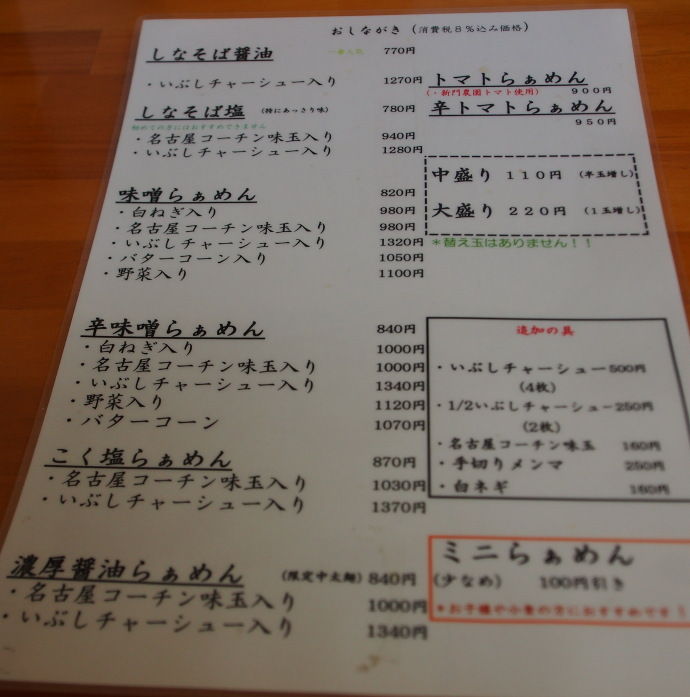 おしながき (消費税8%込み価格)
しなそば醤油 一番人気 770円
・いぶしチャーシュー入り 1270円
しなそば塩 (特にあっさり味) 780円
初めての方にはおすすめできません
・名古屋コーチン味玉入り 940円
・いぶしチャーシュー入り 1280円
味噌らぁめん 820円
・白ねぎ入り 980円
・名古屋コーチン味玉入り 980円
・いぶしチャーシュー入り 1320円
・バターコーン入り 1050円
・野菜入り 1100円
辛味噌らぁめん 840円
・白ねぎ入り 1000円
・名古屋コーチン味玉入り 1000円
・いぶしチャーシュー入り 1340円
・野菜入り 1120円
・バターコーン 1070円
こく塩らぁめん 870円
・名古屋コーチン味玉入り 1030円
・いぶしチャーシュー入り 1370円
濃厚醤油らぁめん (限定中太麺) 840円
・名古屋コーチン味玉入り 1000円
・いぶしチャーシュー入り 1340円
トマトらぁめん
(・新門農園トマト使用) 900円
辛トマトらぁめん
950円
中盛り 110円 (半玉増し)
大盛り 220円 (1玉増し)
*替え玉はありません!!
追加の具
・いぶしチャーシュー500円
(4枚)
・1/2いぶしチャーシュー250円
(2枚)
・名古屋コーチン味玉 160円
・手切りメンマ 250円
・白ネギ 160円
ミニらぁめん
(少なめ) 100円引き
*お子様や小食の方におすすめです!